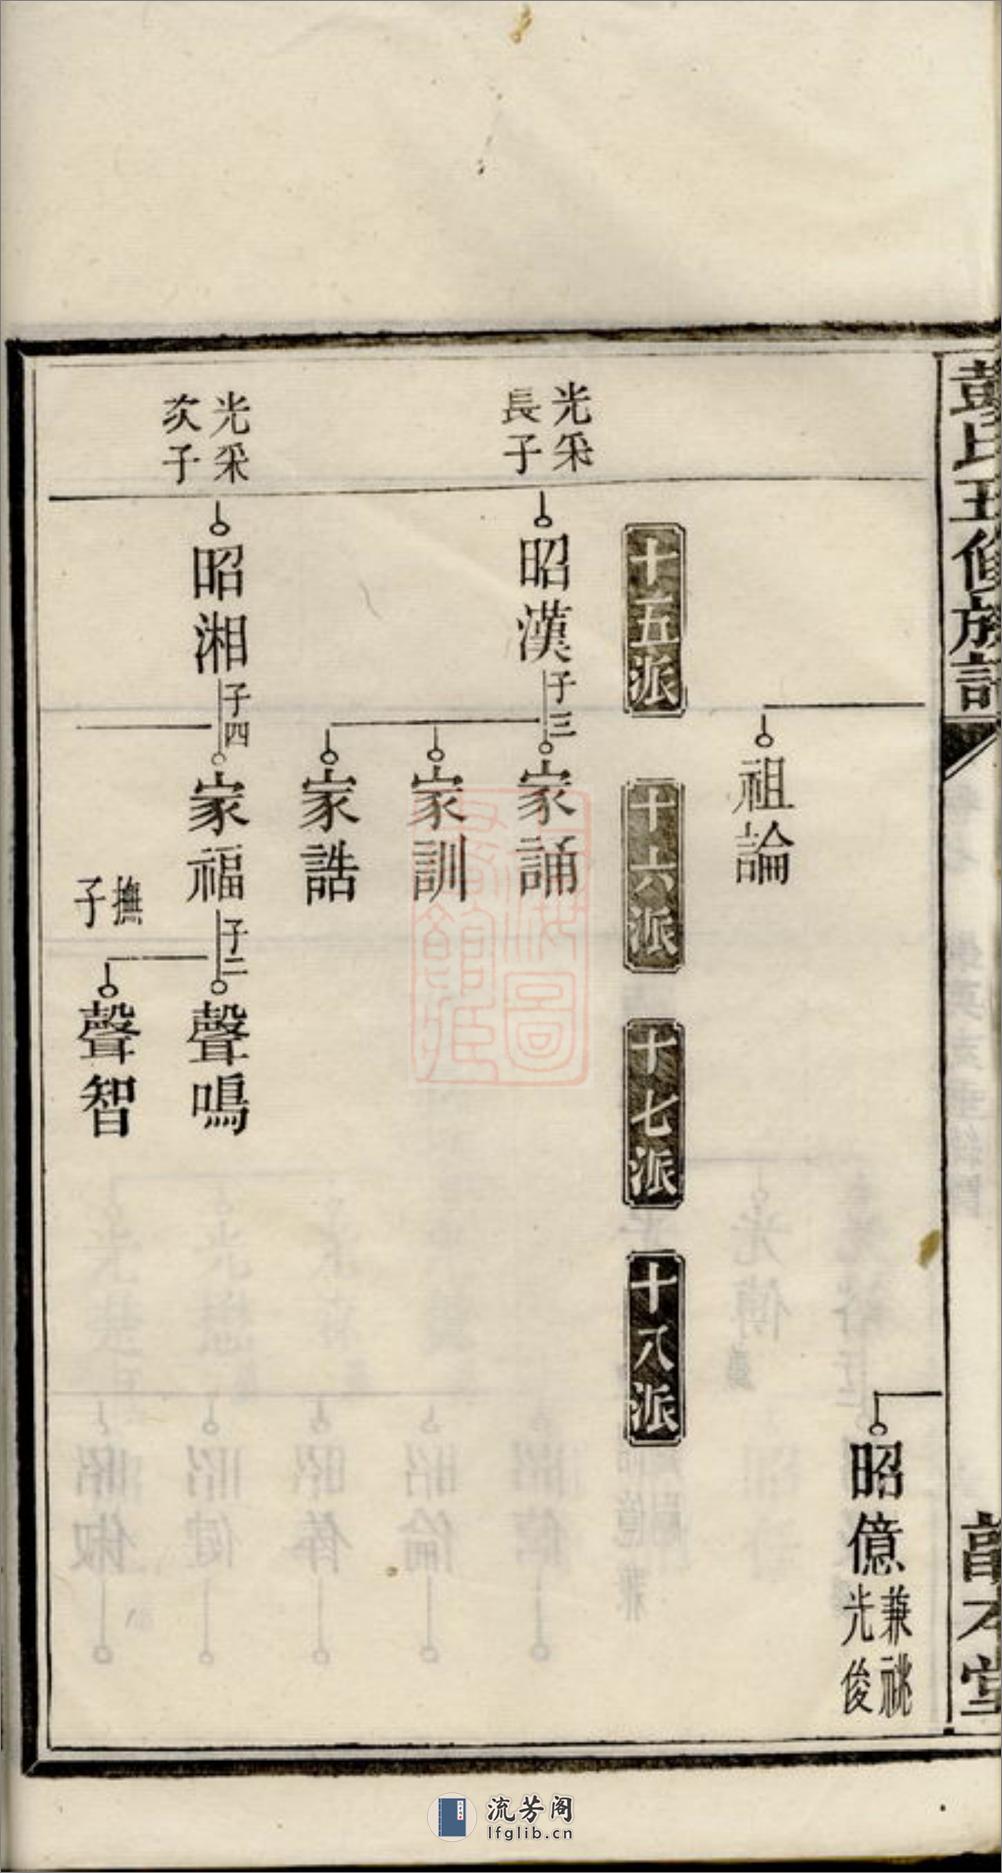 彭氏五修族譜
敦本堂
昭億
兼祧
光俊
祖論
十五派
十六派
十七派
十八派
光采
長子
昭漢
子三
家誦
家訓
家誥
光采
次子
昭湘
子四
家福
子二
聲鳴
撫
子
聲智
流芳阁
lfglib.cn